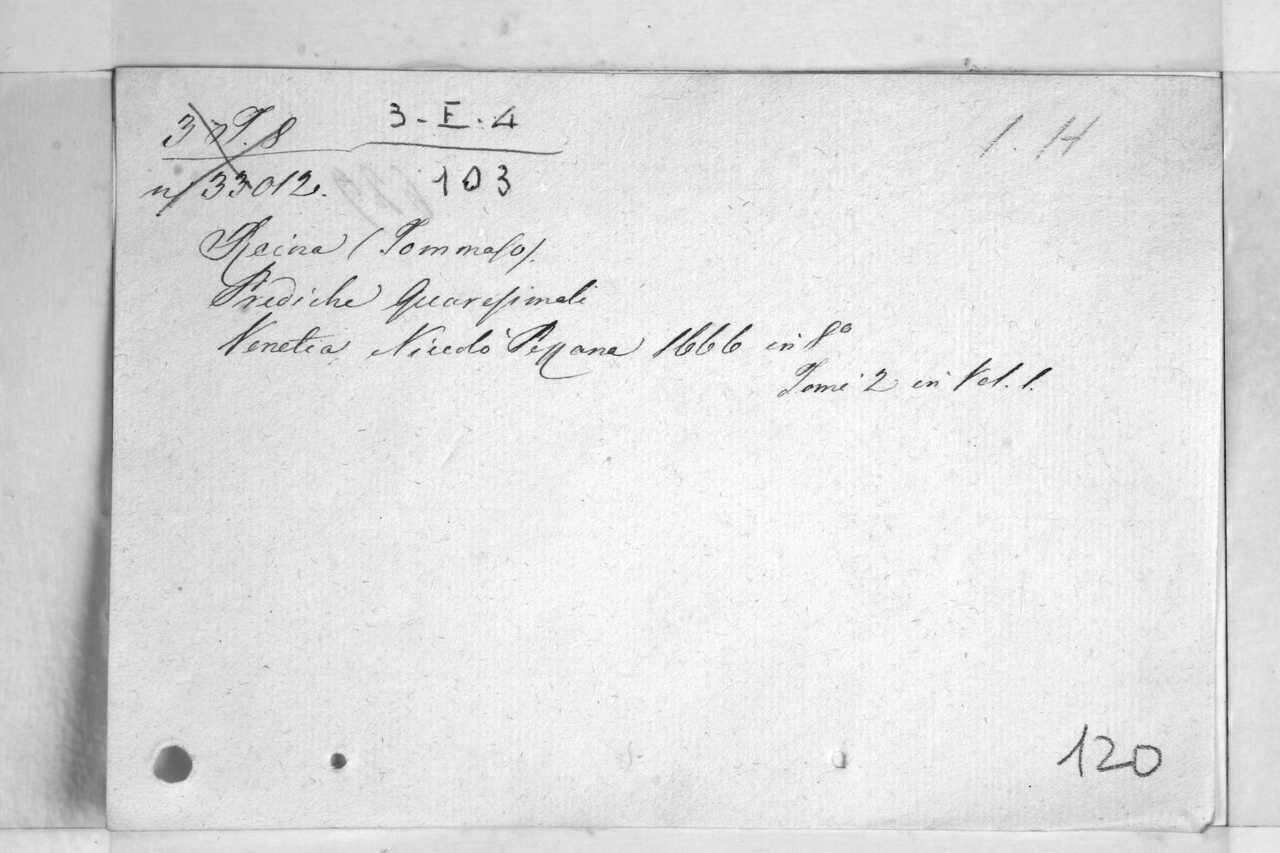 3 - E - 4
1. H
n/33012.
103
Reina (Tommaso).
Prediche Quaresimali
Venetia Nicolò Pezzana 1666 in 8º
Tomi 2 in Vol. 1.
120